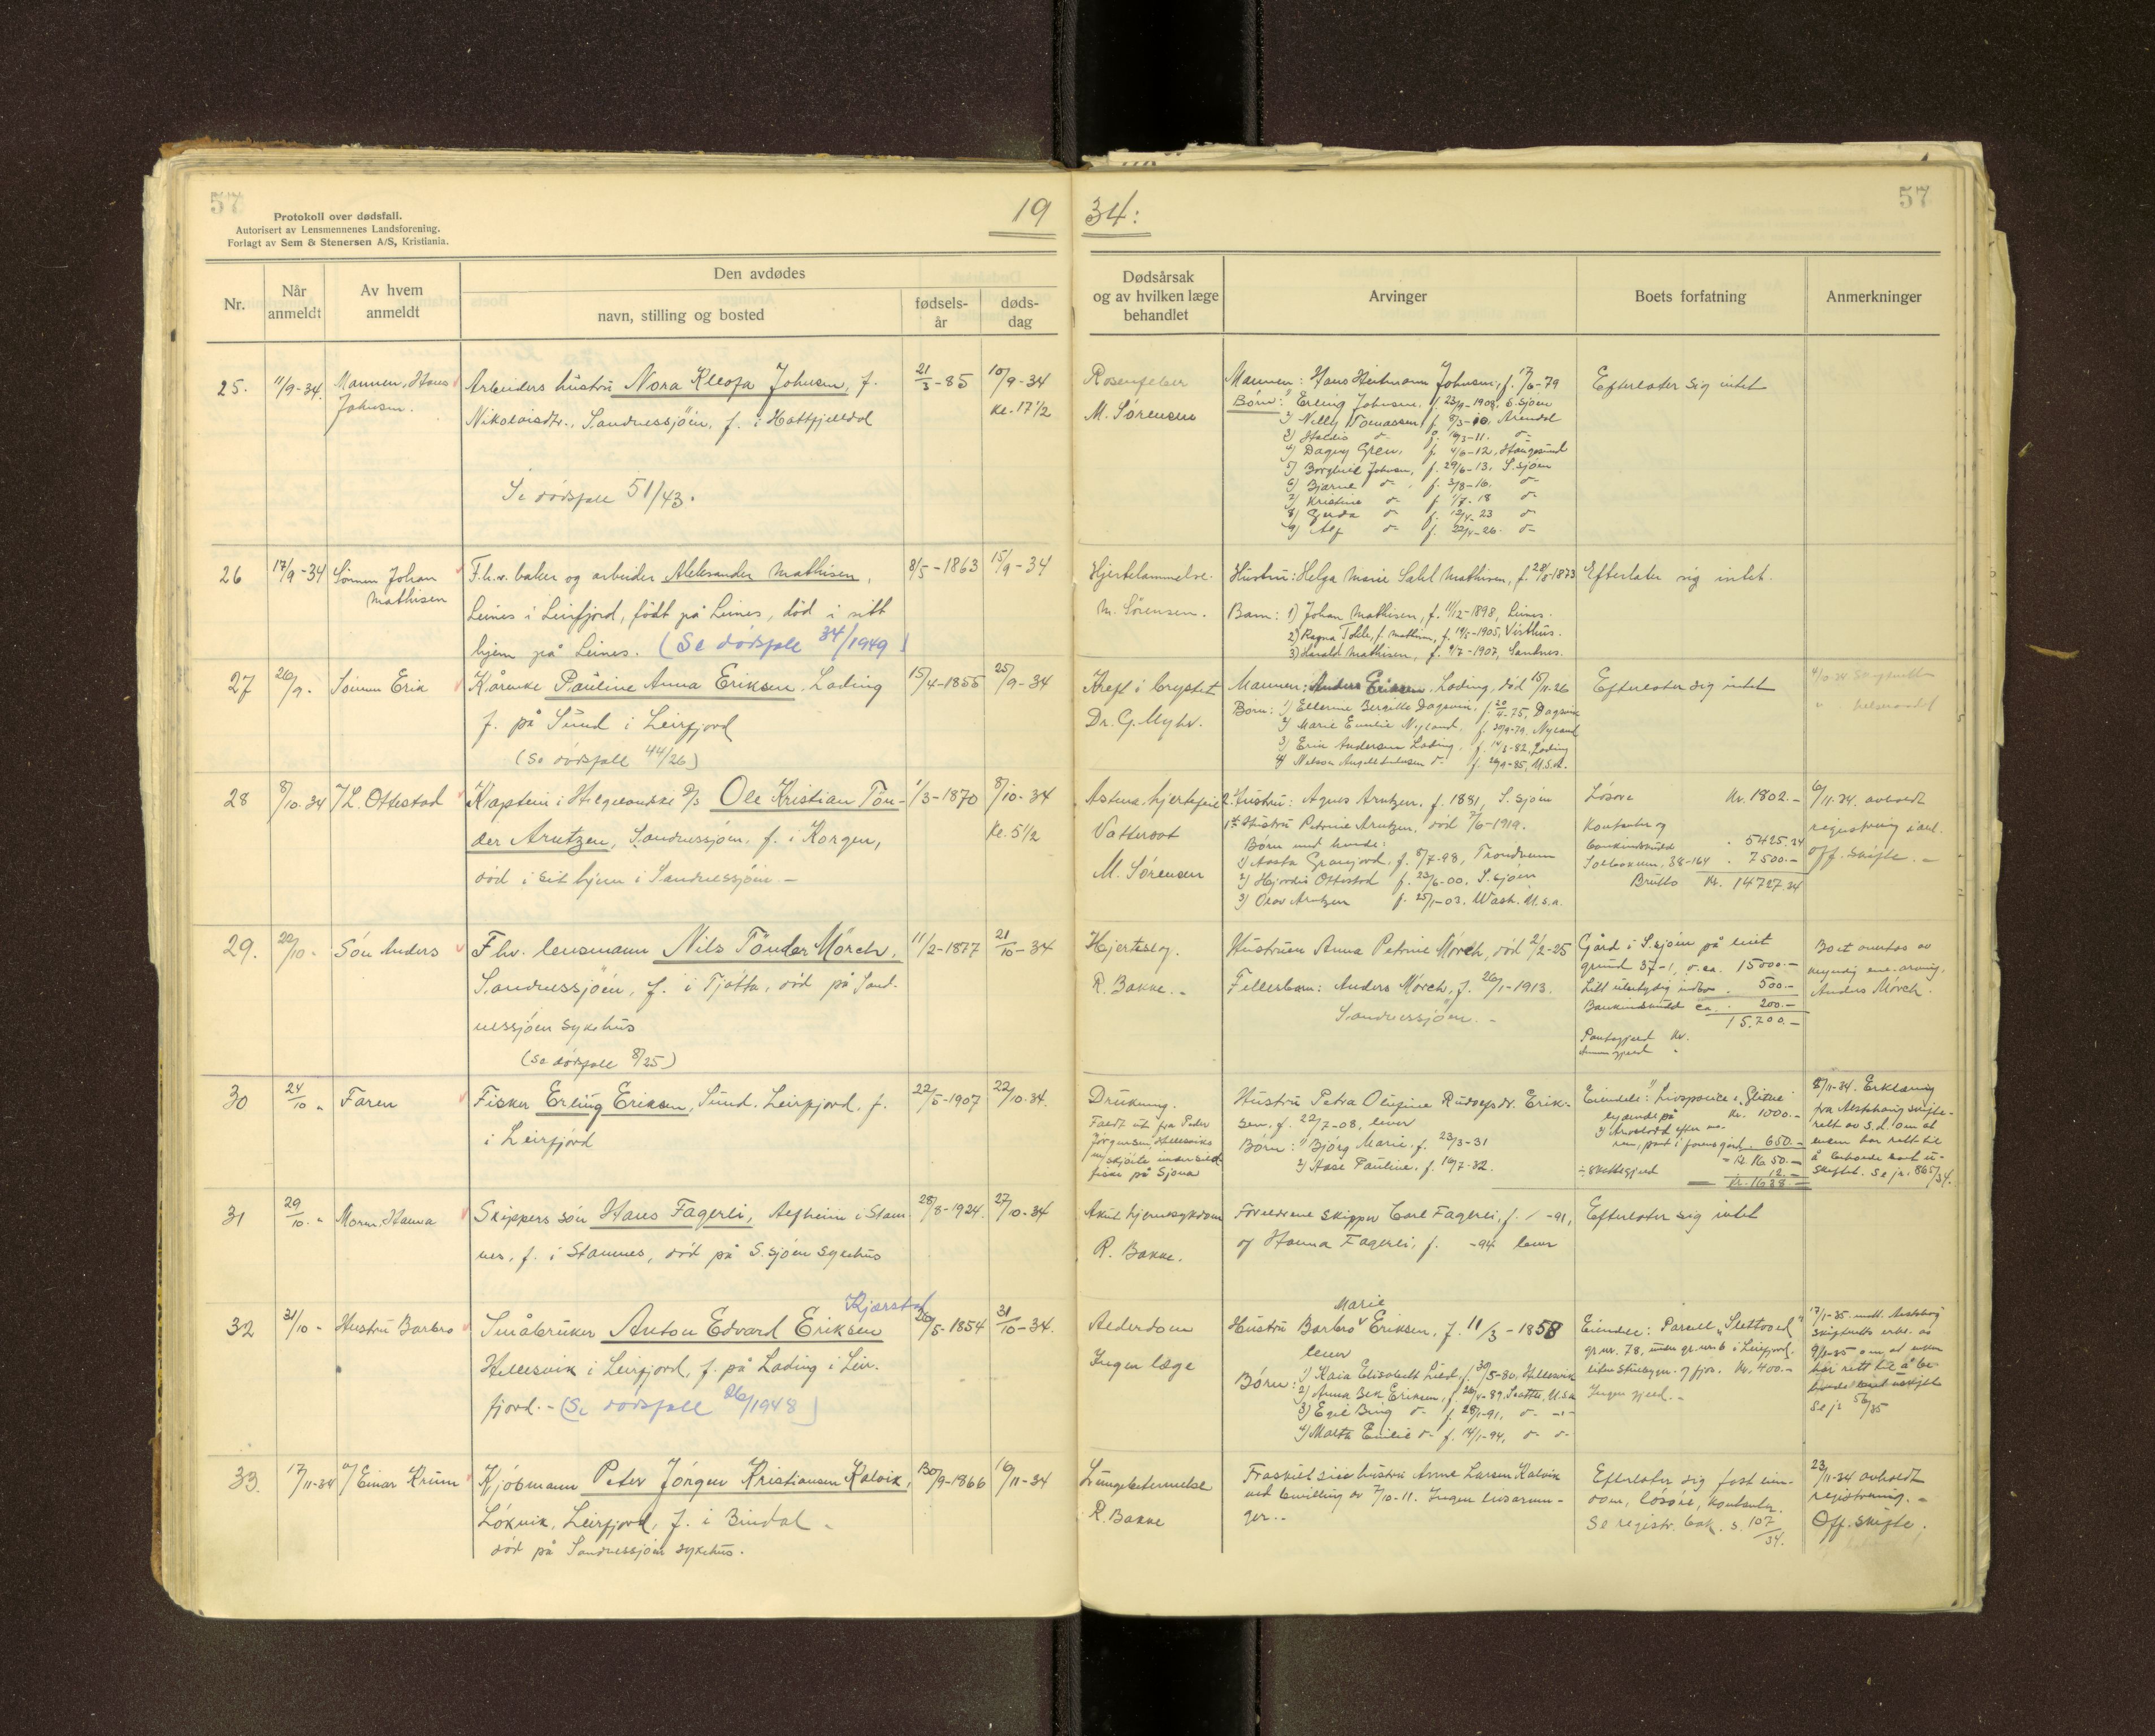 57
Protokoll over dødsfall.
Autorisert av Lensmennenes Landsforening.
Forlagt av Sem & Stenersen A/S, Kristiania.
19
34:
57
Nr.
Når anmeldt
Av hvem anmeldt
Den avdødes
navn, stilling og bosted
fødsels-år
døds-dag
Dødsårsak og av hvilken læge behandlet
Arvinger
Boets forfatning
Anmerkninger
25. 11/9-34. Mannen, Hans Johnsen.
Arbeiders hustru Nora Kleofa Johnsen, f.
Nikolaisdtr., Sandnessjöen, f. i Hattfjelldal
Se dödsfall 51/43.
21/3-85
10/9-34
Kl. 17 1/2
Rosenfeber
M. Sørensen
Mannen: Hans Johnsen, f. 17/6-79
Børn: 1) Erling Johnsen, f. 1908, S.sjøen
2) Nilly Tomassen, f. 8/3-10, Arendal
3) Haldis
4) Dagny Gren, f. 4/6-12, Haugesund
5) Borghild Johnsen, f. 29/6-13, S.sjøen
6) Bjarne f. 3/8-16.
7) Kristine f. 1/7-18
8) Gerda f. 12/4-23
9) Alf f. 22/4-26
Efterlater sig intet
26 17/9-34 Sønnen Johan Mathisen
F.h.v. baker og arbeider Aleksander Mathisen,
Leines i Leirfjord, født på Leines, död i sitt
hjem på Leines. (Se dödsfall 34/1949)
8/5-1863
15/9-34
Hjertelammelse.
M. Sørensen.
Hustru: Helga Marie Mathisen, f. 28/8-1873
Barn: 1) Johan Mathisen, f. 11/12-1898, Leines.
2) Ragna f. Mathisen, f. 1905, Visthus.
3) Harald Mathisen, f. 9/7-1907, Sandnes.
Efterlater sig intet.
27 26/9- Sönnen Erik
Kårenke Pauline Anna Eriksen, Lading
f. på Sund i Leirfjord
(Se dödsfall 44/26)
15/4-1855
25/9-34
Kreft i brystet
Dr. G. Myhr.
Mannen: Anders Eriksen, Lading, död 15/11-26
Børn: 1) Ellerine Bergitte Dagsvik, f. 20/4-75, Dagsvik
2) Marie Emelie Nyland, f. 30/9-79, Nyland
3) Erik Andersen Lading, f. 14/3-82, Lading
4) f. 26/9-85, U.S.A.
Efterlater sig intet
28 8/10-34 Ottestad
Kaptein i Helgelandske D/S Ole Kristian Tön-
der Arntzen, Sandnessjöen, f. i Korgen,
död i sit hjem i Sandnessjöen.-
1/3-1870
8/10-34
Kl. 5 1/2
Astma, hjertefeil
Vattersot
M. Sørensen
2. Hustru: Agnes Arntzen, f. 1881, S.sjøen
1ste Hustru Petrine Arntzen, död 7/6-1919.
Børn med hende:
1) Aasta f. 8/7-98, Trondheim
2) Hjördis Ottestad f. 23/6-00, S.sjøen
3) Olav Arntzen f. 25/1-03, Wash. U.S.A.
Lösøre Kr. 1802.-
Kontanter og
bankinnskudd " 5425.34
" 7500.-
Brutto Kr. 14727.34
6/11-34. avholdt
registrering
Off. skifte.-
29. 22/10- Sön Anders
F.hv. lensmann Nils Tönder Mörch,
Sandnessjöen, f. i Tjötta, död på Sand-
nessjöen sykehus
(Se dödsfall 8/25)
11/2-1877
21/10-34
Hjerteslag.
R. Bakke.-
Hustruen Anna Petrine Mörch, död 2/2-25
Fellesbarn: Anders Mörch, f. 26/1-1913.
Sandnessjöen.-
Gård i S.sjøen på leiet
grund 37-1, v. ca. 15000.-
Litt ubetydelig indbo " 500.-
Bankindskudd ca. " 200.-
15.700.-
Pantegjeld Kr.
Boet overtas av
myndig ene-arving,
Anders Mörch.
30 24/10 " Faren
Fisker Erling Eriksen, Sund, Leirfjord, f.
i Leirfjord
22/5-1907
22/10-34.
Drukning.
Faldt ut fra Peder
Jörgensen Hellesviks
m/skjöite under sild-
fiske på Sjona
Hustru Petra Olufine Rudolfsdr. Erik-
sen, f. 22/7-08, lever
Børn: 1) Bjørg Marie, f. 23/3-31
2) Aase Pauline, f. 16/7-32.
Eiendele: 1) Livspolice i "Glitne"
lydende på Kr. 1000.-
2) Arvelodd efter mo-
ren, pant i farens gård. 650.-
Kr. 1650.-
÷ skattegjeld 12.-
Kr. 1638.-
8/11-34. Erklæring
fra Alstahaug skifte-
rett av s.d. om at
enken har rett til
å beholde boet u-
skiftet. Se jr. 865/34.
31 29/10- " Moren, Hanna
Skippers sön Hans Fagerli, Alfheim i Stam-
nes, f. i Stamnes, död på S.sjöen sykehus
28/8-1924.
27/10-34
Akut hjernesykdom
R. Bakke.
Foreldrene skipper Carl Fagerli, f. -91,
og Hanna Fagerli, f. -94 lever
Efterlater sig intet
32 31/10 - Hustru Barbro
Småbruker Anton Edvard Eriksen Kjærstad
Hellesvik i Leirfjord, f. på Lading i Leir-
fjord.- (Se dödsfall 26/1948)
26/5-1854
31/10-34.
Alderdom
Ingen læge
Hustru Barbro Marie Eriksen, f. 11/3-1858
lever
Børn: 1) Kaia Elisabeth Lied, f. 30/5-80, Hellesvik
2) Anna Bek Eriksen, f. 89, Seattle, U.S.A.
3) Egil Bing f. 28/1-91,
4) Marta Emilie f. 14/1-94,
Eiendele: Parsell "Slettvoll"
gr.nr. 78, under gr.nr. 6 i Leirfjord.
liten stuebygn. og fjös. Kr. 400.-
Ingen gjeld.-
17/1-35. mott. Alstahaug
skifteretts erkl. av
9/1-35 om, at enken
har rett til å be-
holde boet uskiftet
Se jr. 56/35
33. 17/11-34 Einar Krum
Kjöbmann Peter Jörgen Kristiansen Kalvik,
Lökvik, Leirfjord, f. i Bindal -
död på Sandnessjöen sykehus.
30/9-1866
16/11-34
Lungebetennelse
R. Bakke
Fraskilt sin hustru Anne Larsen Kalvik
ved bevilling av 7/10-11. Ingen livsarvin-
ger.-
Efterlater sig fast eien-
dom, lösöre, kontanter.
Se registr. bok. s. 107/34.
23/11-34 avholdt
registrering.-
Off. skifte.